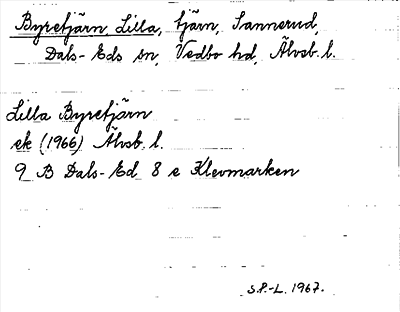 Byretjärn, Lilla, tjärn, Sannerud,
Dals-Eds sn, Vedbo hd, Älvsb. l.
Lilla Byretjärn
ek (1966) Älvsb. l.
9 B Dals-Ed 8 e Klevmarken
S.P.-L. 1967.